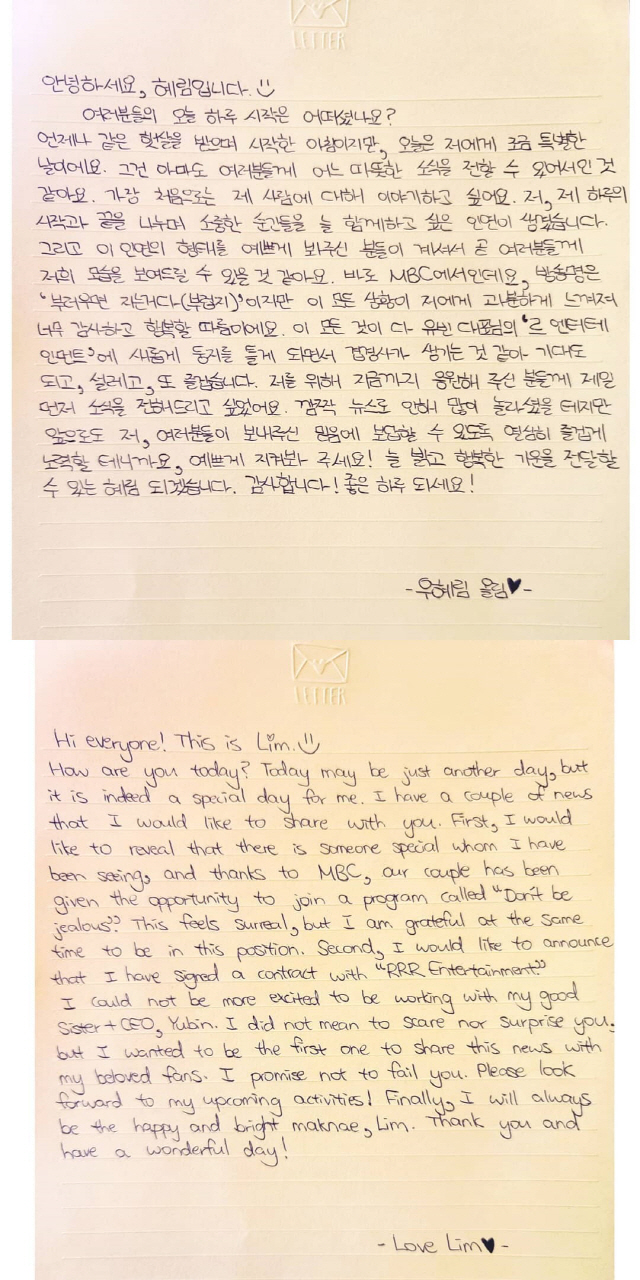 LETTER
안녕하세요, 혜림입니다. :)
여러분들의 오늘 하루 시작은 어떠셨나요?
언제나 같은 햇살을 받으며 시작한 아침이지만, 오늘은 저에게 조금 특별한
날이에요. 그건 아마도 여러분들께 어느 따뜻한 소식을 전할 수 있어서인 것
같아요. 가장 처음으로는 제 사람에 대해 이야기하고 싶어요. 저, 제 하루의
시작과 끝을 나누며 소중한 순간들을 늘 함께하고 싶은 인연이 생겼습니다.
그리고 이 인연의 형태를 예쁘게 봐주신 분들이 계셔서 곧 여러분들께
저희 모습을 보여드릴 수 있을 것 같아요. 바로 MBC에서인데요, 방송명은
'부러우면 지는거다(부럽지)'이지만 이 모든 상황이 저에게 과분하게 느껴져
너무 감사하고 행복할 따름이에요. 이 모든 것이 다 유빈 대표님의 '르 엔터테
인먼트'에 새롭게 둥지를 틀게 되면서 겹경사가 생기는 것 같아 기대도
되고, 설레고, 또 즐겁습니다. 저를 위해 지금까지 응원해 주신 분들께 제일
먼저 소식을 전해드리고 싶었어요. 깜짝 뉴스로 인해 많이 놀라셨을 테지만
앞으로도 저, 여러분들이 보내주신 믿음에 보답할 수 있도록 열심히 즐겁게
노력할 테니까요, 예쁘게 지켜봐 주세요! 늘 밝고 행복한 기운을 전달할
수 있는 혜림 되겠습니다. 감사합니다! 좋은 하루 되세요!
-우혜림 올림♥-
LETTER
Hi everyone! This is Lim. :)
How are you today? Today may be just another day, but
it is indeed a special day for me. I have a couple of news
that I would like to share with you. First, I would
like to reveal that there is someone special whom I have
been seeing, and thanks to MBC, our couple has been
given the opportunity to join a program called "Don't be
jealous". This feels surreal, but I am grateful at the same
time to be in this position. Second, I would like to announce
that I have signed a contract with "RRR Entertainment"
I could not be more excited to be working with my good
Sister + CEO, Yubin. I did not mean to scare nor surprise you,
but I wanted to be the first one to share this news with
my beloved fans. I promise not to fail you. Please look
forward to my upcoming activities! Finally, I will always
be the happy and bright maknae, Lim. Thank you and
have a wonderful day!
- Love Lim♥ -